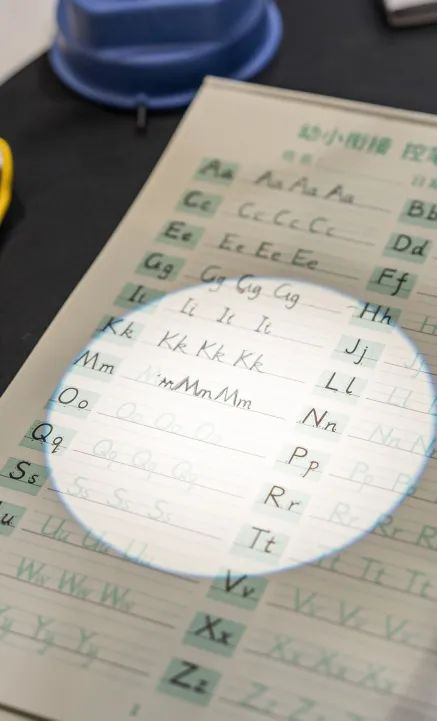 幼小衔接 控笔
Aa Aa Aa Aa Bb
Cc Cc Cc Cc Dd
Ee Ee Ee Ee Ff
Gg Gg Gg Gg Hh
Ii Ii Ii Ii Jj
Kk Kk Kk Kk Ll
Mm Mm Mm Nn Nn Nn
Oo Oo Oo Oo Pp Pp Pp
Qq Qq Qq Qq Rr Rr Rr R
Ss Ss Ss Ss Tt Tt Tt
u Uu Uu Uu Vv Vv Vv Vv
Ww Ww Ww Xx Xx Xx Xx
Yy Yy Yy Zz Zz Zz Zz